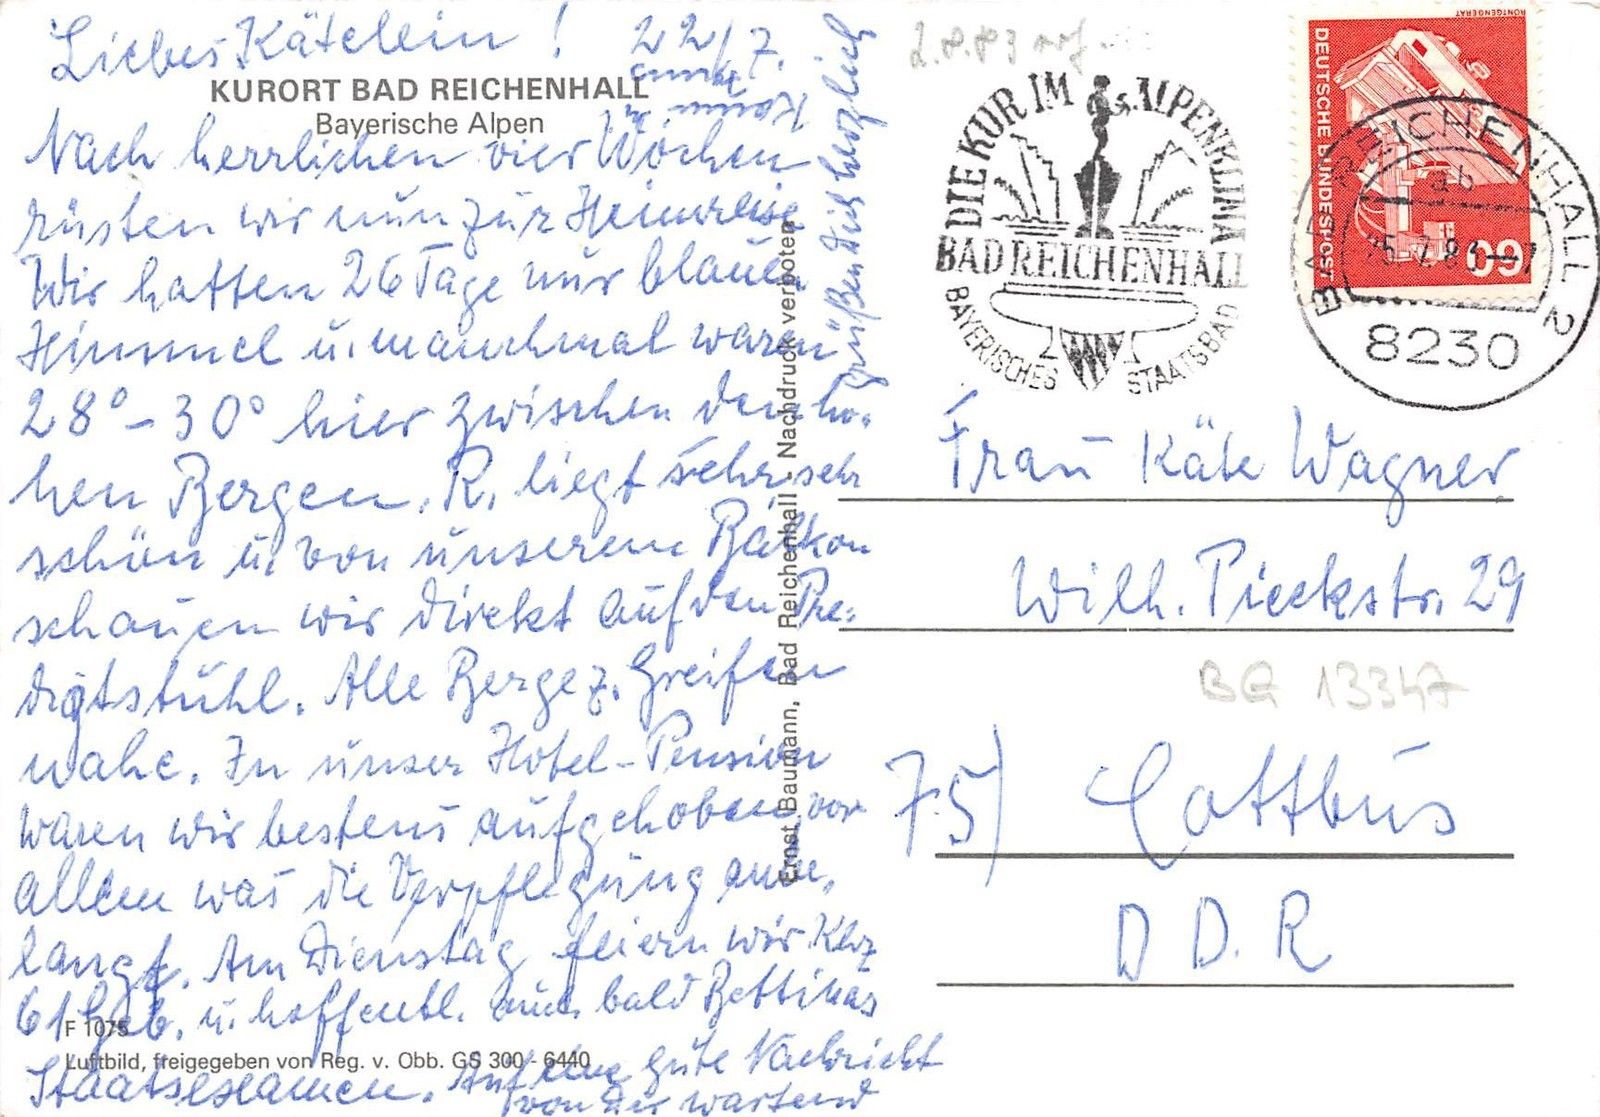 Liebes Kätelein! 22/7.
KURORT BAD REICHENHALL
Bayerische Alpen
Nach herrlichen vier Wochen
rüsten wir nun zur Heimreise
Wir hatten 26 Tage nur blauen
Himmel u. manchmal waren
28° - 30° hier zwischen den ho-
hen Bergen. R. liegt sehr sehr
schön u. von unserem Balkon
schauen wir direkt auf den Pre-
digtstuhl. Alle Berge z. Greifen
nahe. In unser Hotel-Pension
waren wir bestens aufgehoben, vor
allem was die Verpflegung anbe-
langt. Am Dienstag feiern wir
61 Geb. u. hoffentl. auch bald Bettinas
Staatsexamen. Auf eine gute Nachricht
von Dir wartend
grüßen Dich herzlich
F 1075
Luftbild, freigegeben von Reg. v. Obb. GS 300 - 6440
Ernst Baumann, Bad Reichenhall - Nachdruck verboten
2.8.83
DIE KUR IM ALPENKLIMA
BAD REICHENHALL
BAYERISCHES STAATSBAD
RÖNTGENGERÄT
DEUTSCHE BUNDESPOST
60
BAD REICHENHALL 2
ab
8230
Frau Käte Wagner
Wilh. Pieckstr. 29
BG 13347
75) Cottbus
D D. R